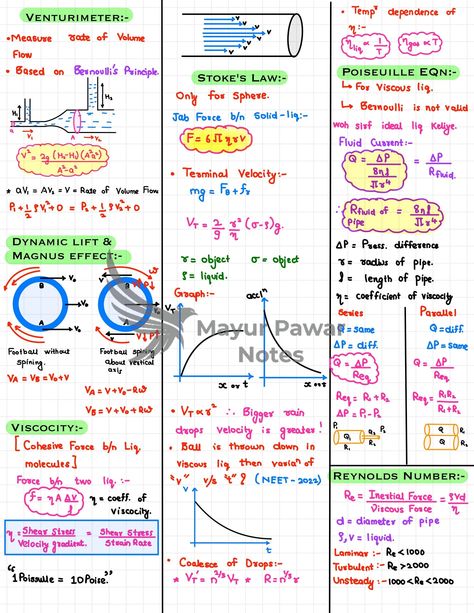 VENTURIMETER:-
• Measure rate of Volume
Flow
• Based on Bernoulli's Principle.
H₁
H₂
a
A
V₁
V₂
V² = 2g (H₂-H₁) (A²a²)
A²-a²
* aV₁ = AV₂ = V = Rate of Volume Flow
P₁ + ½ ρV₁² + 0 = P₂ + ½ ρV₂² + 0
DYNAMIC LIFT &
MAGNUS EFFECT:-
B
V₀
A
V₀
B
V₀
A
V₀
Football without
spinning.
Football spinning
about vertical
axis
VA = VB = V₀+V
VA = V+V₀-Rω
VB = V+V₀+Rω
VISCOCITY:-
[ Cohesive Force b/n Liq.
molecules ]
Force b/n two liq. :-
f = η A ΔV
y
η = coeff. of
viscocity.
η = Shear Stress
Velocity gradient.
= Shear Stress
Strain Rate
"1 Poisuille = 10 Poise."
STOKE'S LAW:-
Only for Sphere.
Jab Force b/n Solid-liq:-
F = 6πηrv
• Terminal Velocity:-
mg = FB + fr
VT = 2/9 r²/η (σ-ρ)g.
r = object
σ = object
ρ = liquid.
Graph:-
VT
accⁿ
x or t
x or t
• VT ∝ r² ∴ Bigger rain
drops velocity is greater!
• Ball is thrown down in
viscous liq then variaⁿ of
"v" v/s "t" (NEET-2022)
v
t
• Coalesce of Drops:-
* VT' = n^2/3 VT * R = n^1/3 r
• Tempʳ dependence of
η:-
ηliq ∝ 1/T
ηgas ∝ T
POISEUILLE EQN:-
↳ For Viscous liq.
↳ Bernoulli is not valid
woh sirf ideal liq keliye.
Fluid Current:-
Q = ΔP
8ηl
πr⁴
= ΔP
Rfluid.
Rfluid of = 8ηl
pipe πr⁴
ΔP = Press. difference
r = radius of pipe.
l = length of pipe.
η = coefficient of viscocity
Series
Parallel
Q = same
Q = diff.
ΔP = diff.
ΔP = same
Q = ΔP
Req
Req = R₁R₂
R₁+R₂
Req = R₁+R₂
ΔP = P₁-P₂
P₁
P₂
Q₁
Q₂
R₁
R₂
REYNOLDS NUMBER:-
Re = Inertial Force = ρvd
Viscous Force η
d = diameter of pipe
ρ, v = liquid.
Laminar :- Re < 1000
Turbulent :- Re > 2000
Unsteady :- 1000 < Re < 2000
Mayur Pawar
Notes